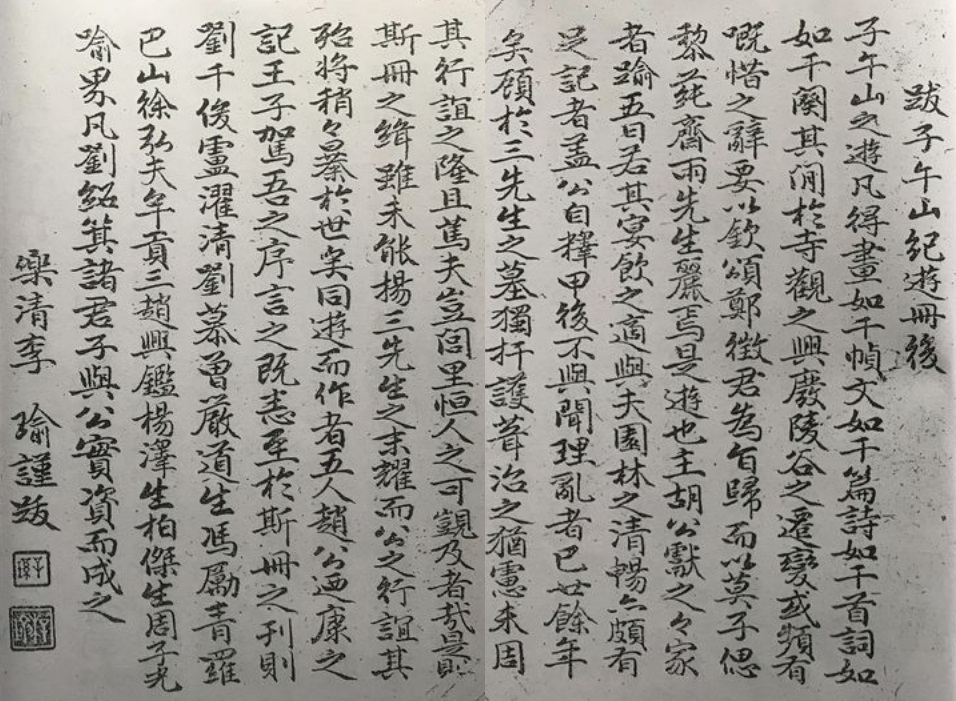 跋子午山纪遊冊後
子午山之遊凡得畫如千幀文如千篇詩如千首詞如
如千闋其间於寺觀之興廢陵谷之遷變或頻有
嘅惜之辭要以欽頌鄭徵君為旨歸而以莫子偲
黎莼齋兩先生麗焉是遊也主胡公獻之々家
者踰五日若其宴飲之適與夫園林之清暢亦頗有
足記者盖公自釋甲後不與聞理亂者已世餘年
矣顧於三先生之墓獨扞護葺治之猶慮未周
其行誼之隆且篤夫豈闾里恒人之可覬及者哉是則
斯冊之緝雖未能揚三先生之末耀而公之行誼其
殆将稍々暴於世矣同遊而作者五人趙公迺康之
記王子駕吾之序言之既悉至於斯冊之刋則
劉千俊盧濯清劉慕曽嚴道生馮勵青羅
巴山徐弘夫牟貢三趙興鑑楊澤生柏傑生周子光
喻界凡劉紹箕諸君子與公實資而成之
樂清李 瑜謹跋